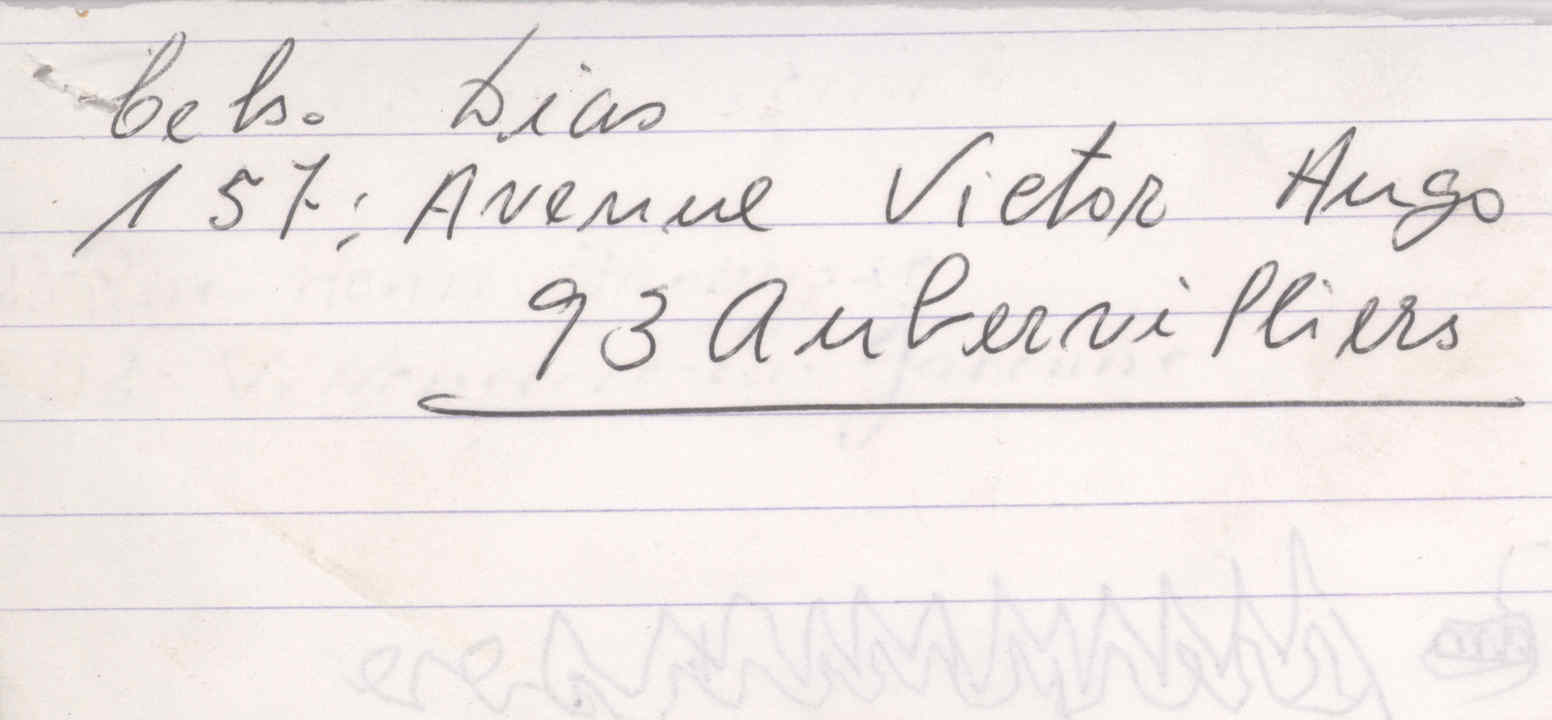 Celso Dias
157, Avenue Victor Hugo
93 Aubervilliers